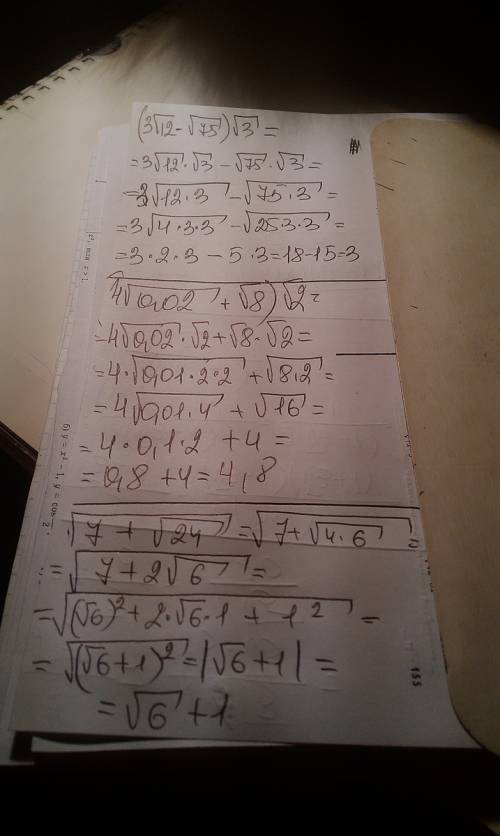 (3√12 - √75)√3 =
= 3√12 · √3 - √75 · √3 =
= 3√12·3 - √75·3 =
= 3√4·3·3 - √25·3·3 =
= 3·2·3 - 5·3 = 18-15=3
(4√0,02 + √8)√2 =
= 4√0,02 · √2 + √8 · √2 =
= 4·√0,01·2·2 + √8·2 =
= 4√0,01·4 + √16 =
= 4·0,1·2 + 4 =
= 0,8 + 4 = 4,8
√7 + √24 = √7 + √4·6
= √7 + 2√6 =
= √(√6)² + 2·√6·1 + 1² =
= √(√6+1)² = |√6+1| =
= √6 + 1
155